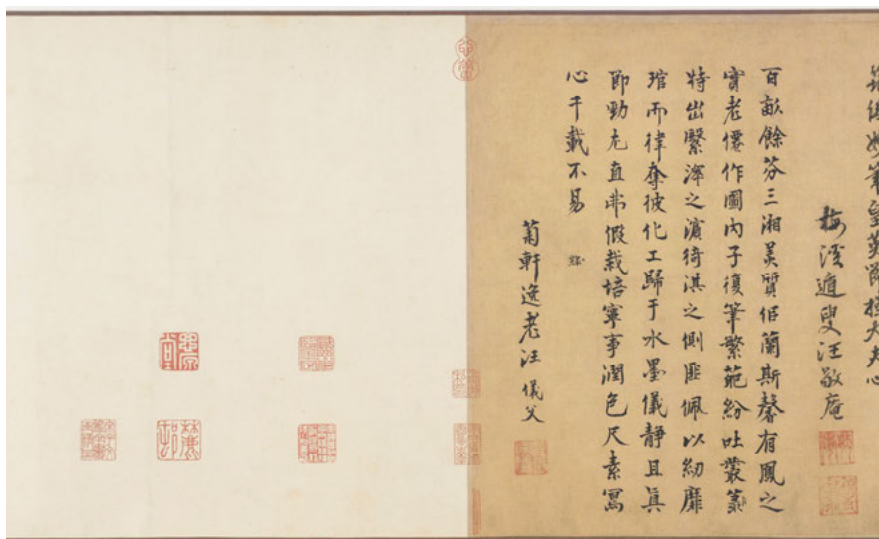 筠傳妙筆皇英節操大夫心
梅溪遁叟汪敬庵
百畝餘芬三湘美質佀蘭斯馨有鳳之
實老僊作圖內子復筆繁葩紛吐叢篆
特出繄澤之濱猗淇之側匪佩以紉靡
琯而律奪彼化工歸于水墨儀靜且真
節勁尤直弗假栽培寧事潤色尺素寫
心千載不易
菊軒逸老汪儀父